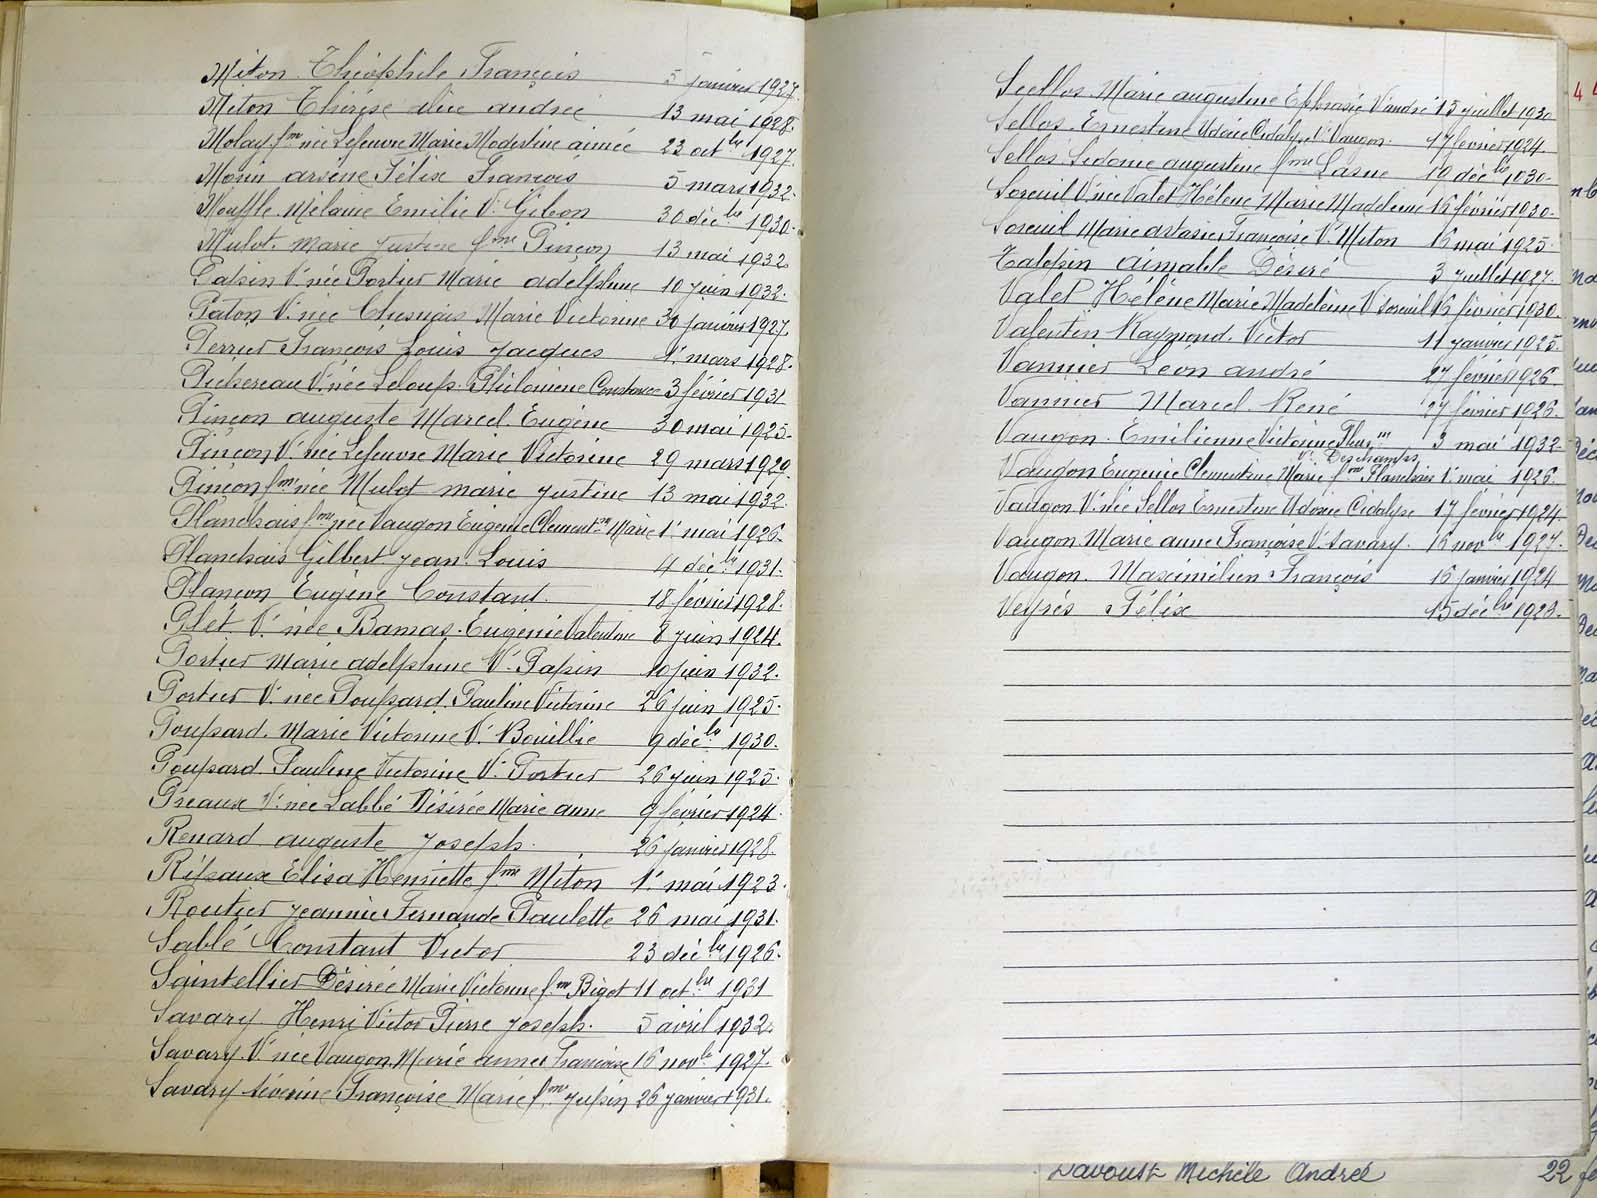 Miton Théophile François 5 janvier 1927.
Miton Thérèse alice andrée 13 mai 1928.
Molay fme née Lefeuvre Marie Modestine aimée 23 octbre 1927.
Morin arsène Félix François 5 mars 1932.
Mouffle Mélanie Emilie Ve Gibon 30 décbre 1930.
Mulot marie justine fme Pinçon 13 mai 1932
Papin Ve née Portier Marie adelphine 10 juin 1932.
Paton Ve née Chesnais Marie Victorine 30 janvier 1927.
Perrier François Louis Jacques 1er mars 1928.
Pichereau Ve née Leloup Philomène Constance 3 février 1931
Pinçon auguste Marcel Eugène 30 mai 1925.
Pinçon Ve née Lefeuvre Marie Victorine 29 mars 1929.
Pinçon fme née Mulot marie justine 13 mai 1932.
Planchais fme née Vaugon Eugénie Clementne Marie 1er mai 1926.
Planchais Gilbert Jean Louis 4 décbre 1931.
Plançon Eugène Constant. 18 février 1928.
Plét Ve née Bamas Eugénie Valentine 8 juin 1924.
Portier Marie adelphine Ve Papin 10 juin 1932.
Portier Ve née Poupard Pauline Victorine 26 juin 1925.
Poupard Marie Victorine Ve Bouillie 9 décbre 1930.
Poupard Pauline Victorine Ve Portier 26 juin 1925.
Préaux Ve née Labbé Désirée Marie anne 9 février 1924.
Renard auguste Joseph. 26 janvier 1928.
Ripaux Elisa Henriette fme Miton 1er mai 1923.
Routier Jeannine Fernande Paulette 26 mai 1931.
Sablé Constant Victor 23 décbre 1926.
Saintellier Désirée Marie Victorine fme Bigot 11 octbre 1931
Savary Henri Victor Pierre Joseph. 5 avril 1932.
Savary Ve née Vaugon Marie anne Françoise 16 novbre 1927.
Savary Séverine Françoise Marie fme Jupin 26 janvier 1931.
Sellos Marie augustine Ephrasie 15 juillet 1930
Sellos Ernestine Udoxie Cidalyse Ve Vaugon. 17 février 1924.
Sellos Sidonie augustine fme Lasne 19 décbre 1930.
Soreuil Ve née Valet Hélène Marie Madeleine 16 février 1930.
Soreuil Marie astasie Françoise Ve Miton 16 mai 1925.
Talopin aimable Désiré 3 juillet 1927.
Valet Hélène Marie Madeleine Ve Soreuil 16 février 1930.
Valentin Raymond Victor 11 janvier 1925.
Vannier Léon andré 27 février 1926.
Vannier Marcel René 27 février 1926.
Vaugon Emilienne Victorine 3 mai 1932.
Ve Deschamps
Vaugon Eugénie Clementine Marie fme Planchais 1er mai 1926.
Vaugon Ve née Sellos Ernestine Udoxie Cidalyse 17 février 1924.
Vaugon Marie anne Françoise Ve Savary. 16 novbre 1927.
Vaugon Maximilien François 16 janvier 1924
Veyrés Félix 15 décbre 1923.
Davoust Michèle Andrée 22 fé